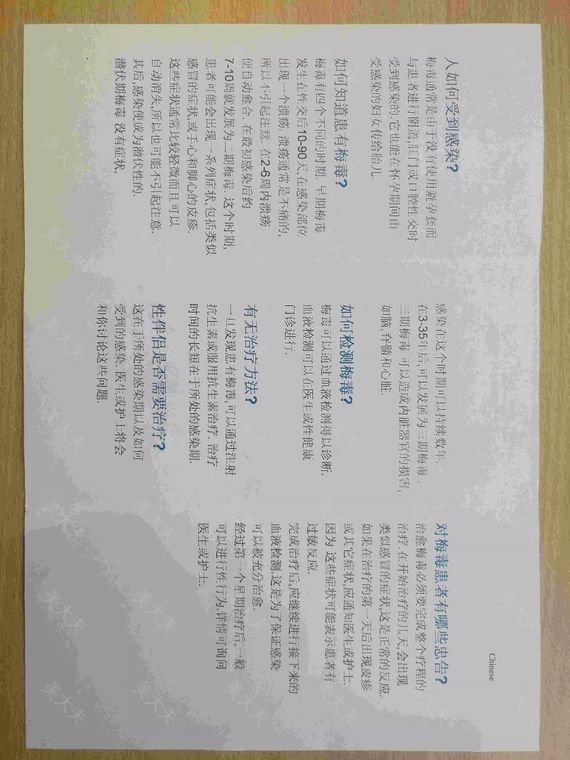 Chinese
人如何受到感染?
梅毒通常是由于没有使用避孕套而
与患者进行阴道,肛门或口腔性交时
受到感染的.它也能在怀孕期间由
受感染的妇女传给胎儿.
如何知道患有梅毒?
梅毒有四个不同的时期. 早期梅毒
发生在性交后10-90天,在感染部位
出现一个溃疡. 溃疡通常是不痛的,
所以不引起注意. 在2-6周内溃疡
便自动愈合. 在最初感染后约
7-10周就发展为二期梅毒. 这个时期,
患者可能会出现一系列症状,包括类似
感冒的症状,或手心和脚心的皮疹.
这些症状通常比较轻微而且可以
自动消失,所以也可能不引起注意.
其后,感染便成为潜伏性的.
潜伏期梅毒 没有症状.
感染在这个时期可以持续数年.
在3-35年后,可以发展为三期梅毒
三期梅毒 可以造成内脏器官的损害,
如脑,脊髓和心脏.
如何检测梅毒?
梅毒可以通过血液检测得以诊断.
血液检测可以在医生或性健康
门诊进行.
有无治疗方法?
一旦发现患有梅毒,可以通过注射
抗生素或服用抗生素治疗. 治疗
时间的长短在于所处的感染期.
性伴侣是否需要治疗?
这在于所处的感染期以及如何
受到的感染. 医生或护士将会
和你讨论这些问题.
对梅毒患者有哪些忠告?
治愈梅毒必须要完成整个疗程的
治疗.在开始治疗的几天,会出现
类似感冒的症状,这是正常的反应.
如果在治疗的第一天后出现皮疹
或其它症状,应通知医生或护士.
因为 这些症状可能表示患者有
过敏反应.
完成治疗后,应继续进行接下来的
血液检测,这是为了保证感染
可以被充分治愈.
经过第一个星期治疗后,一般
可以进行性行为,详情可询问
医生或护士.